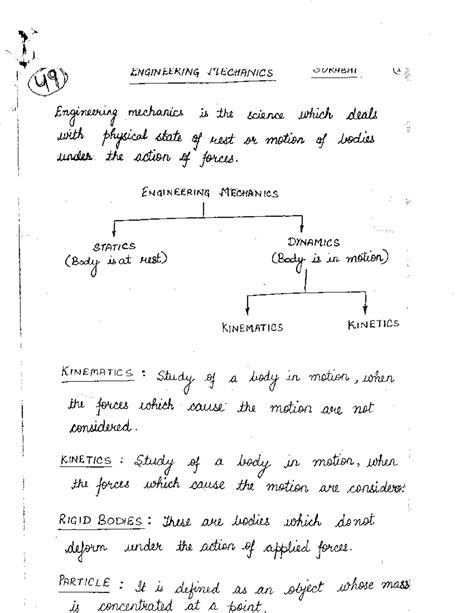 49
ENGINEERING MECHANICS SURABHI
Engineering mechanics is the science which deals
with physical state of rest or motion of bodies
under the action of forces.
ENGINEERING MECHANICS
STATICS DYNAMICS
(Body is at rest) (Body is in motion)
KINEMATICS KINETICS
KINEMATICS : Study of a body in motion, when
the forces which cause the motion are not
considered.
KINETICS : Study of a body in motion, when
the forces which cause the motion are consider
RIGID BODIES : These are bodies which donot
deform under the action of applied forces.
PARTICLE : It is defined as an object whose mass
is concentrated at a point.